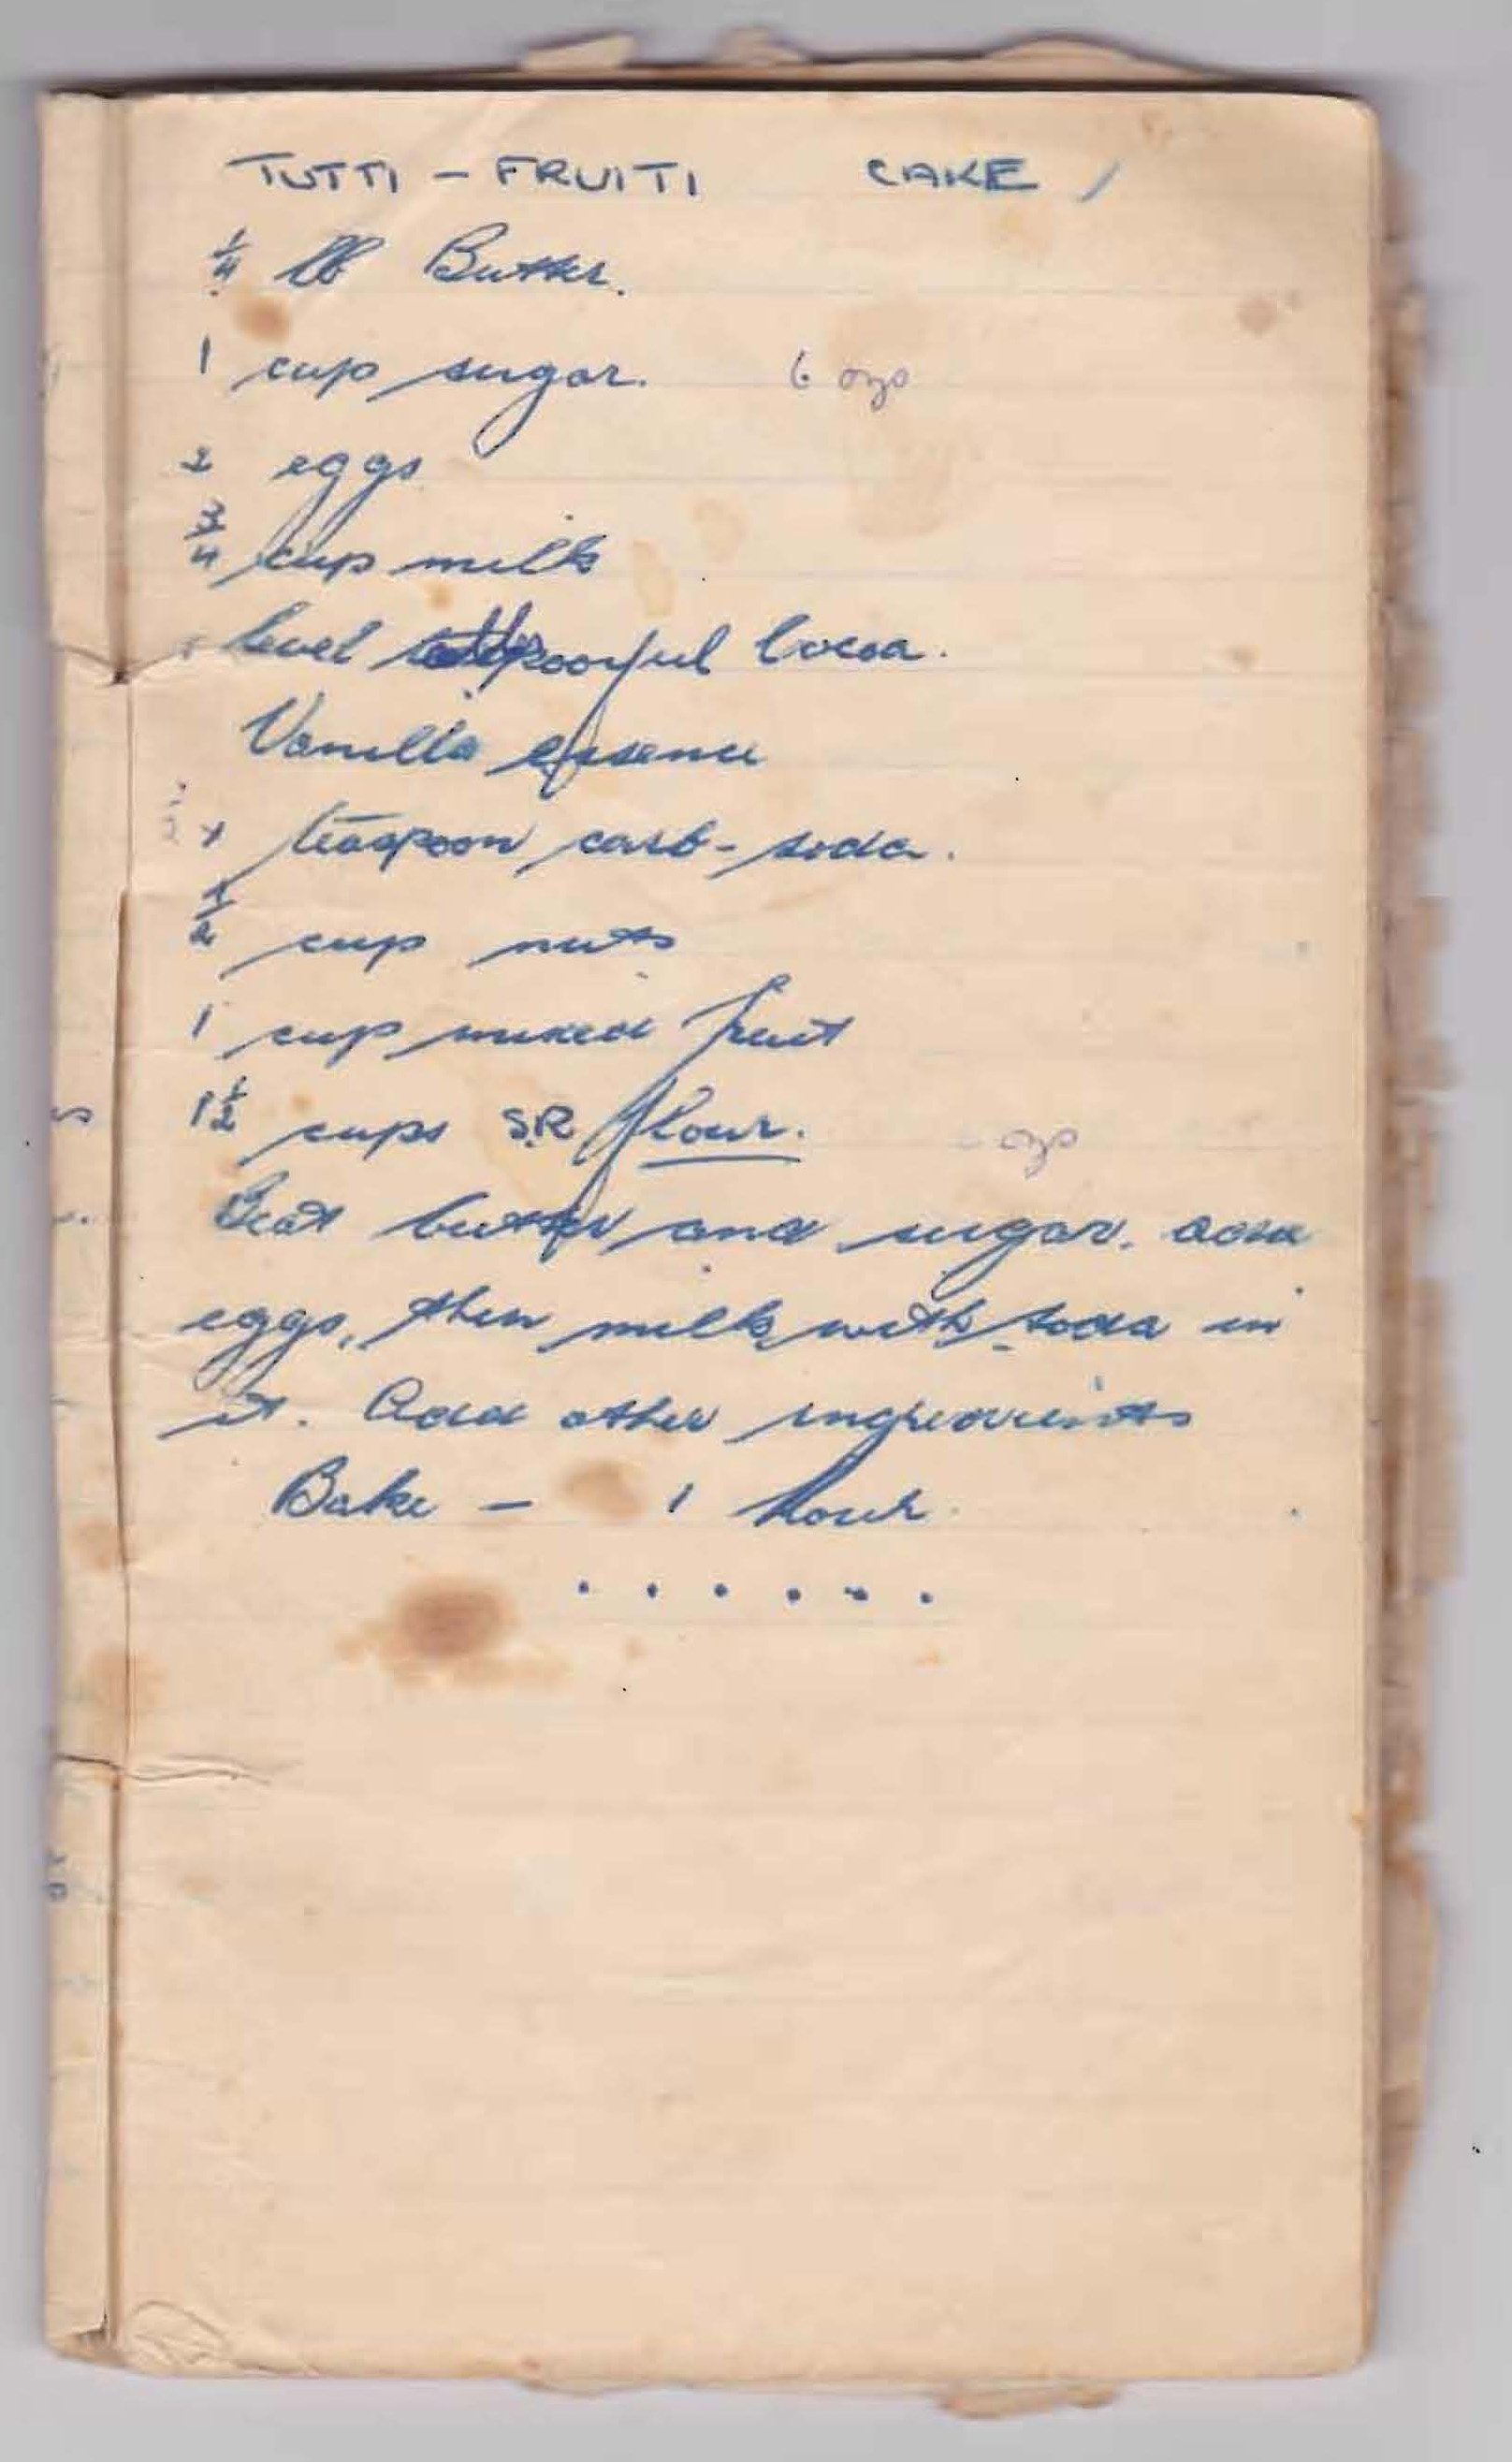 TUTTI - FRUITI CAKE
1/4 lb Butter.
1 cup sugar. 6 ozs
2 eggs
3/4 cup milk
1 level spoonful Cocoa.
Vanilla essence
1 teaspoon carb-soda.
1/2 cup nuts
1 cup mixed fruit
1 1/2 cups S.R flour. ozs
Beat butter and sugar. add
eggs, then milk with soda in
it. Add other ingredients
Bake - 1 hour.
. . . . . .